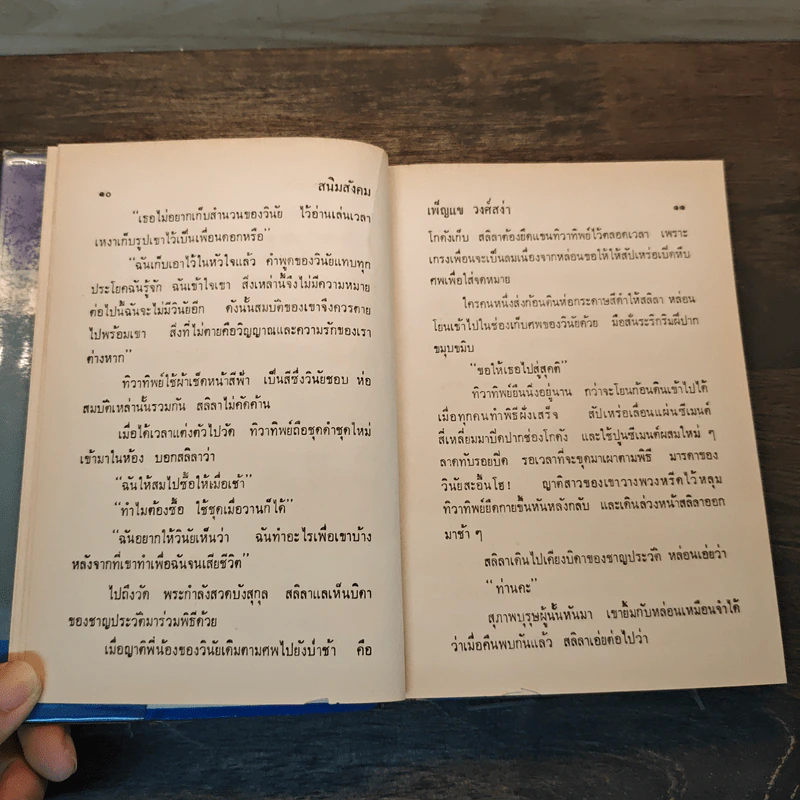 ๑๐ สนิมสังคม
“เธอไม่อยากเก็บสำนวนของวินัย ไว้อ่านเล่นเวลา
เหงาเก็บรูปเขาไว้เป็นเพื่อนดอกหรือ”
“ฉันเก็บเอาไว้ในหัวใจแล้ว คำพูดของวินัยแทบทุก
ประโยคฉันรู้จัก ฉันเข้าใจเขา สิ่งเหล่านี้จึงไม่มีความหมาย
ต่อไปนี้ฉันจะไม่มีวินัยอีก ดังนั้นสมบัติของเขาจึงควรตาย
ไปพร้อมเขา สิ่งที่ไม่ตายคือวิญญาณและความรักของเรา
ต่างหาก”
ทิวาทิพย์ใช้ผ้าเช็ดหน้าสีฟ้า เป็นสีซึ่งวินัยชอบ ห่อ
สมบัติเหล่านั้นรวมกัน สลิลาไม่คัดค้าน
เมื่อได้เวลาแต่งตัวไปวัด ทิวาทิพย์ถือชุดดำชุดใหม่
เข้ามาในห้อง บอกสลิลาว่า
“ฉันให้สมไปซื้อให้เมื่อเช้า”
“ทำไมต้องซื้อ ใช้ชุดเมื่อวานก็ได้”
“ฉันอยากให้วินัยเห็นว่า ฉันทำอะไรเพื่อเขาบ้าง
หลังจากที่เขาทำเพื่อฉันจนเสียชีวิต”
ไปถึงวัด พระกำลังสวดบังสุกุล สลิลาแลเห็นบิดา
ของชาญประวัติมาร่วมพิธีด้วย
เมื่อญาติพี่น้องของวินัยเดินตามศพไปยังป่าช้า คือ
เพ็ญแข วงศ์สง่า ๑๑
โกดังเก็บ สลิลาต้องยึดแขนทิวาทิพย์ไว้ตลอดเวลา เพราะ
เกรงเพื่อนจะเป็นลมเนื่องจากหล่อนขอให้ให้สัปเหร่อเปิดหีบ
ศพเพื่อใส่จดหมาย
ใครคนหนึ่งส่งก้อนดินห่อกระดาษสีดำให้สลิลา หล่อน
โยนเข้าไปในช่องเก็บศพของวินัยด้วย มือสั่นระริกริมฝีปาก
ขมุบขมิบ
“ขอให้เธอไปสู่สุคติ”
ทิวาทิพย์ยืนนิ่งอยู่นาน กว่าจะโยนก้อนดินเข้าไปได้
เมื่อทุกคนทำพิธีฝังเสร็จ สัปเหร่อเลื่อนแผ่นซีเมนต์
สี่เหลี่ยมมาปิดปากช่องโกดัง และใช้ปูนซีเมนต์ผสมใหม่ ๆ
ลาดทับรอยปิด รอเวลาที่จะขุดมาเผาตามพิธี มารดาของ
วินัยสะอื้นโฮ! ญาติสาวของเขาวางพวงหรีดไว้หลุม
ทิวาทิพย์ยืดกายขึ้นหันหลังกลับ และเดินล่วงหน้าสลิลาออก
มาช้า ๆ
สลิลาเดินไปเคียงบิดาของชาญประวัติ หล่อนเอ่ยว่า
“ท่านคะ”
สุภาพบุรุษผู้นั้นหันมา เขายิ้มกับหล่อนเหมือนจำได้
ว่าเมื่อคืนพบกันแล้ว สลิลาเอ่ยต่อไปว่า